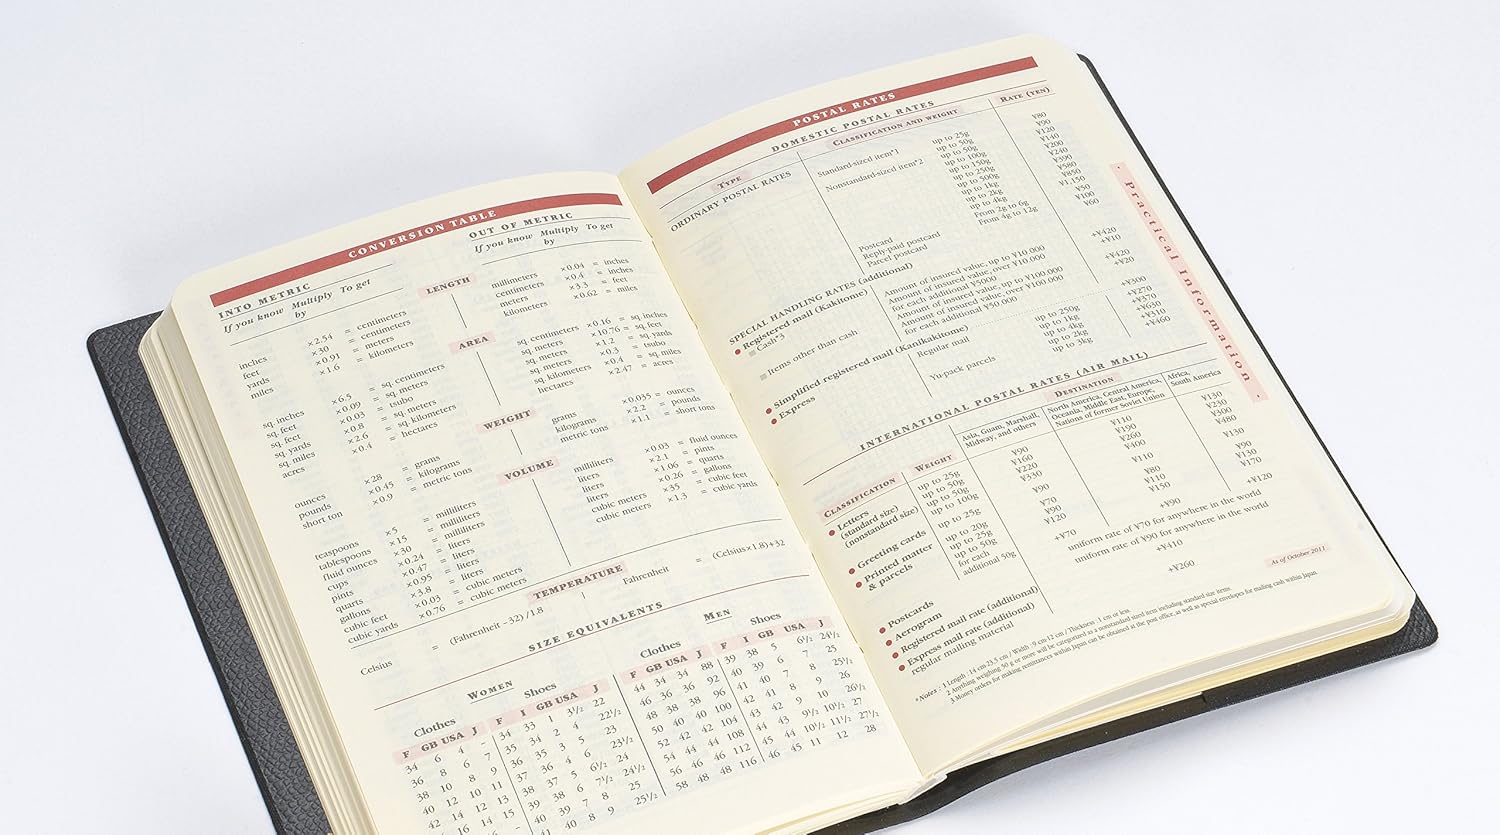 CONVERSION TABLE
INTO METRIC
If you know Multiply by To get
inches ×2.54 = centimeters
feet ×30 = centimeters
yards ×0.91 = meters
miles ×1.6 = kilometers
OUT OF METRIC
If you know Multiply by To get
LENGTH
millimeters ×0.04 = inches
centimeters ×0.4 = inches
meters ×3.3 = feet
kilometers ×0.62 = miles
AREA
sq. inches ×6.5 = sq. centimeters
sq. feet ×0.09 = sq. meters
sq. feet ×0.03 = tsubo
sq. yards ×0.8 = sq. meters
sq. miles ×2.6 = sq. kilometers
acres ×0.4 = hectares
sq. centimeters ×0.16 = sq. inches
sq. meters ×10.76 = sq. feet
sq. meters ×1.2 = sq. yards
sq. meters ×0.3 = tsubo
sq. kilometers ×0.4 = sq. miles
hectares ×2.47 = acres
WEIGHT
ounces ×28 = grams
pounds ×0.45 = kilograms
short ton ×0.9 = metric tons
grams ×0.035 = ounces
kilograms ×2.2 = pounds
metric tons ×1.1 = short tons
VOLUME
teaspoons ×5 = milliliters
tablespoons ×15 = milliliters
fluid ounces ×30 = milliliters
cups ×0.24 = liters
pints ×0.47 = liters
quarts ×0.95 = liters
gallons ×3.8 = liters
cubic feet ×0.03 = cubic meters
cubic yards ×0.76 = cubic meters
milliliters ×0.03 = fluid ounces
liters ×2.1 = pints
liters ×1.06 = quarts
liters ×0.26 = gallons
cubic meters ×35 = cubic feet
cubic meters ×1.3 = cubic yards
TEMPERATURE
Celsius = (Fahrenheit −32) /1.8
Fahrenheit = (Celsius×1.8)+32
SIZE EQUIVALENTS
WOMEN
Clothes Shoes
F GB USA J F I GB USA J
34 6 4 – 34 33 1 3½ 22
36 8 6 7 35 34 2 4 22½
38 10 8 9 36 35 3 5 23
40 12 10 11 37 36 4 6 23½
42 14 12 13 38 37 5 6½ 24
16 14 15 39 38 6 7½ 24½
16 – 40 39 7 8 25
41 40 8 9 25½
MEN
Clothes Shoes
F GB USA J F I GB USA J
44 34 34 88 39 38 5 6½ 24½
46 36 36 92 40 39 6 7 25
48 38 38 96 41 40 7 8 25½
50 40 40 100 42 41 8 9 26
52 42 42 104 43 42 9 10 26½
54 44 44 108 44 43 9½ 10½ 27
56 46 46 112 45 44 10½ 11½ 27½
58 48 48 116 46 45 11 12 28
POSTAL RATES
DOMESTIC POSTAL RATES
TYPE CLASSIFICATION AND WEIGHT RATE (YEN)
ORDINARY POSTAL RATES
Standard-sized item*1 up to 25g ¥80
up to 50g ¥90
Nonstandard-sized item*2 up to 50g ¥120
up to 100g ¥140
up to 150g ¥200
up to 250g ¥240
up to 500g ¥390
up to 1kg ¥580
up to 2kg ¥850
up to 4kg ¥1,150
Postcard From 2g to 6g ¥50
Reply-paid postcard From 4g to 12g ¥100
Parcel postcard ¥60
SPECIAL HANDLING RATES (additional)
Registered mail (Kakitome)
Cash*3 Amount of insured value, up to ¥10 000 +¥420
Amount of insured value, over ¥10 000,
for each additional ¥5000 +¥10
Items other than cash Amount of insured value, up to ¥100 000 +¥420
Amount of insured value, over ¥100 000
for each additional ¥50 000 +¥20
Simplified registered mail (Kanikakitome) +¥300
Express Regular mail up to 250g +¥270
up to 1kg +¥370
up to 4kg +¥630
Yu-pack parcels up to 2kg +¥310
up to 3kg +¥460
INTERNATIONAL POSTAL RATES (AIR MAIL)
DESTINATION
CLASSIFICATION WEIGHT
Asia, Guam, Marshall, Midway, and others
North America, Central America, Oceania, Middle East, Europe, Nations of former Soviet Union
Africa, South America
Letters
(standard size) up to 25g ¥90 ¥110 ¥130
up to 50g ¥160 ¥190 ¥230
(nonstandard size) up to 50g ¥220 ¥260 ¥300
up to 100g ¥330 ¥400 ¥480
Greeting cards up to 25g ¥90 ¥110 ¥130
Printed matter & parcels up to 20g ¥70 ¥80 ¥90
up to 25g ¥90 ¥110 ¥130
up to 50g ¥120 ¥150 ¥170
for each additional 50g +¥70 +¥90 +¥120
Postcards uniform rate of ¥70 for anywhere in the world
Aerogram uniform rate of ¥90 for anywhere in the world
Registered mail rate (additional) +¥410
Express mail rate (additional)
regular mailing material +¥260
As of October 2011
*Notes : 1 Length : 14 cm-23,5 cm / Width : 9 cm-12 cm / Thickness : 1 cm or less.
2 Anything weighing 50 g or more will be categorized as a nonstandard sized item including standard size items.
3 Money orders for making remittances within Japan can be obtained at the post office, as well as special envelopes for mailing cash within Japan.
· Practical Information ·